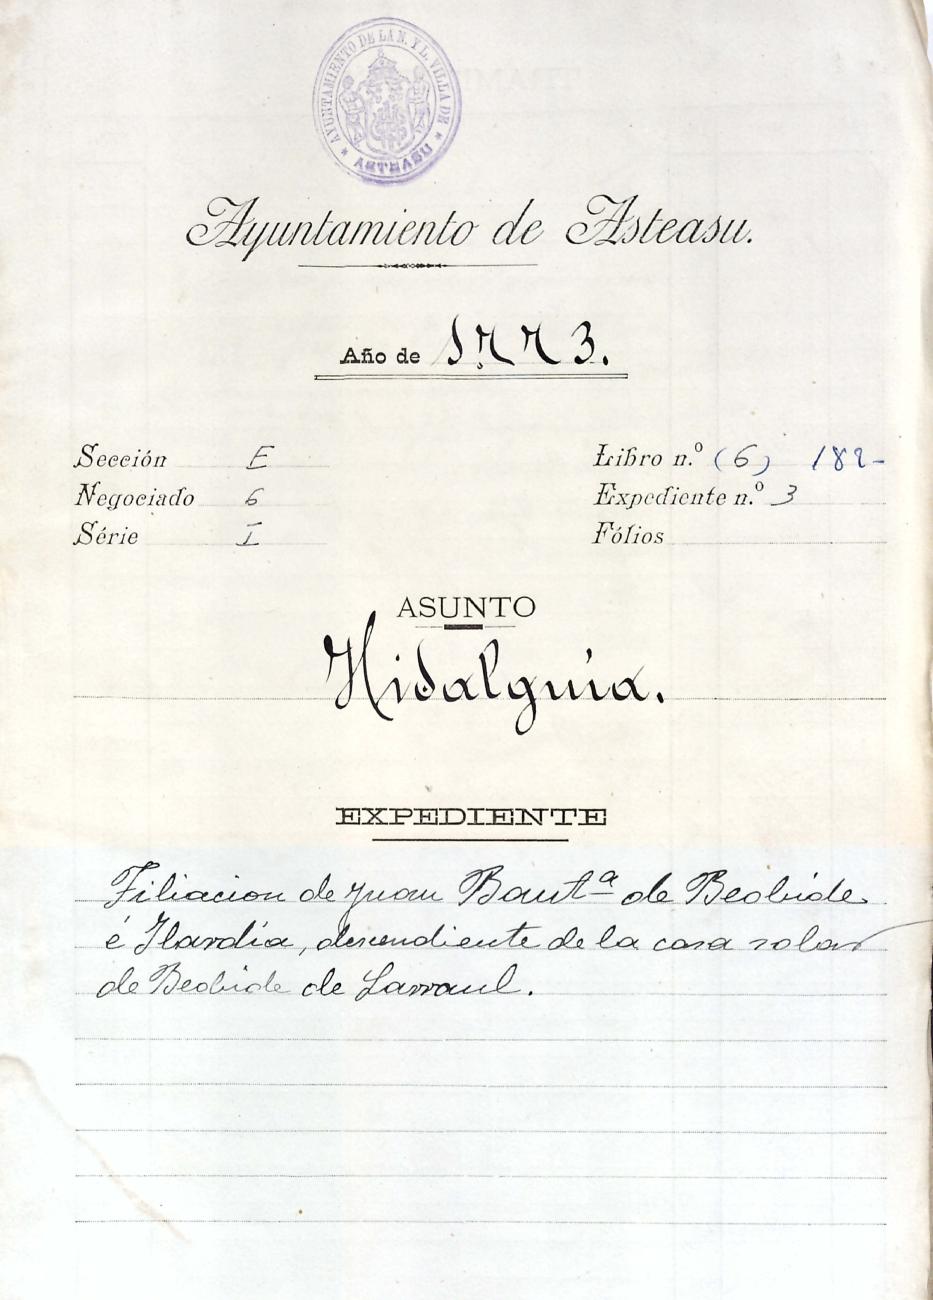 AYUNTAMIENTO DE LA N. Y L. VILLA DE
* ASTEASU *
Ayuntamiento de Asteasu.
Año de 1773.
Sección E
Negociado 6
Série I
Libro n.º (6) 182-
Expediente n.º 3
Fólios
ASUNTO
Hidalguía.
EXPEDIENTE
Filiacion de Juan Baut.ª de Beobide
é Ilardia, descendiente de la casa solar
de Beobide de Larraul.